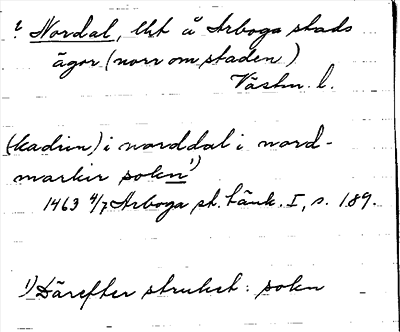 ? Nordal, lht å Arboga stads
ägor (norr om staden)
Västm. l.
(kadrin) i norddal i nord-
markin sokn 1)
1463 4/7 Arboga st. tänk. I, s. 189.
1) Därefter struket: sokn